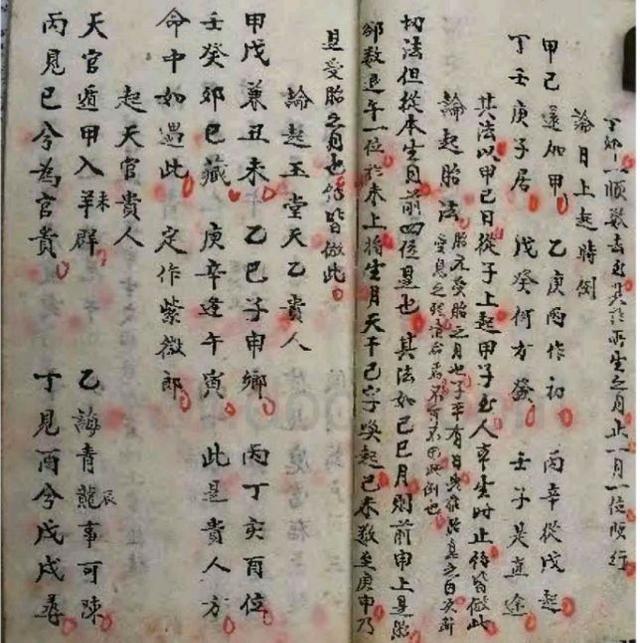 一順數去至其於所生之月止一月一位順行
論日上起時例
甲己還加甲 乙庚丙作初 丙辛從戊起
丁壬庚子居 戊癸何方發 壬子是直途
其法以甲己日從子上起甲子至人本生時止餘皆倣此
論起胎法 胎元受胎之月也子平有日
切法但從本生月前四位是也 其法如己巳月則前申上是胎
卻數退午一位於未上將生月天干己字喚起己未數至庚申乃
是受胎之月也餘皆倣此
論起玉堂天乙貴人
甲戊兼丑未 乙己子申鄉 丙丁亥酉位
壬癸卯巳藏 庚辛逢午寅 此是貴人方
命中如遇此 定作紫微郎
起天官貴人
天官遁甲入羊未群 乙誨青龍辰事可陳
丙見巳兮為官貴 丁見酉兮戊戌尋